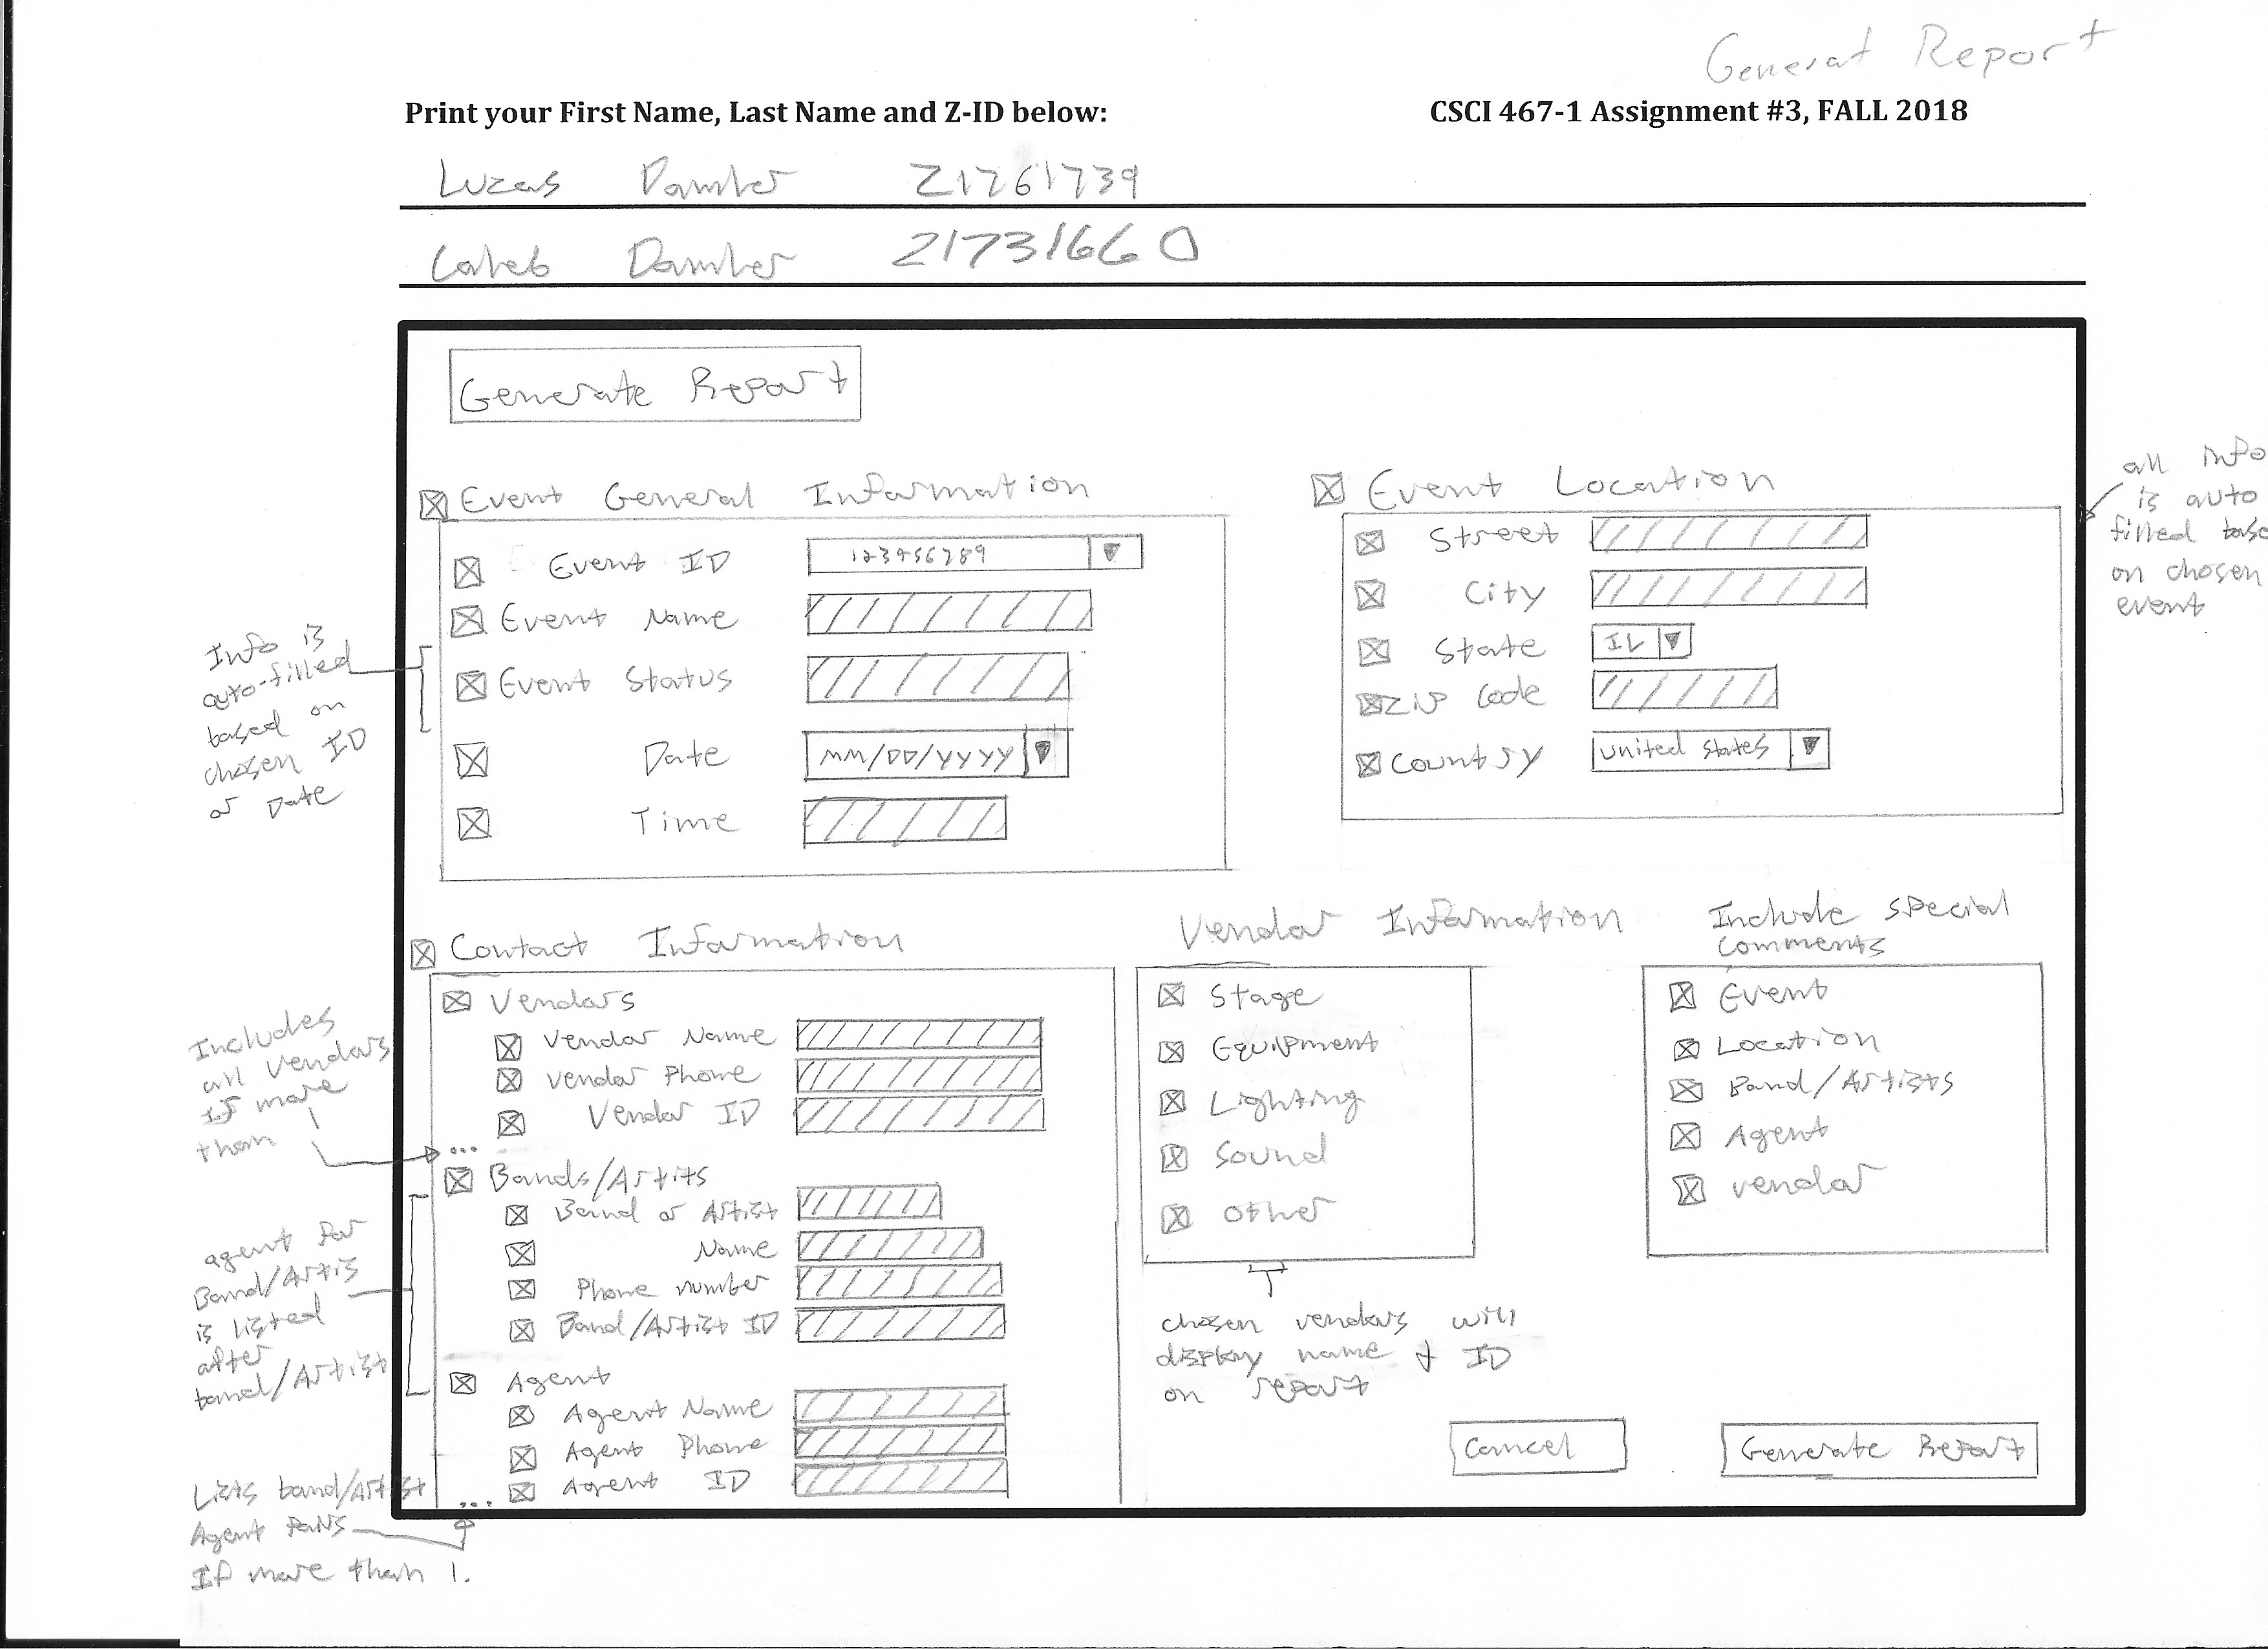 Generat Report
Print your First Name, Last Name and Z-ID below:
CSCI 467-1 Assignment #3, FALL 2018
Lucas Z1761739
Caleb Z1731660
Generate Report
Event General Information
Event ID 123456789
Event Name
Event Status
Date MM/DD/YYYY
Time
Info is
auto-filled
based on
chosen ID
or Date
Event Location
Street
City
State IL
Zip Code
Country United States
all info
is auto
filled base
on chosen
event
Contact Information
Vendors
Vendor Name
Vendor Phone
Vendor ID
...
Bands/Artits
Band or Artist
Name
Phone number
Band/Artist ID
Agent
Agent Name
Agent Phone
Agent ID
...
Includes
all vendors
If more
than 1
agent for
Band/Artis
is listed
after
band/Artist
Lists band/Artist
Agent Pairs
If more than 1.
Vendor Information
Stage
Equipment
Lighting
Sound
Other
chosen vendors will
display name & ID
on report
Include special
comments
Event
Location
Band/Artists
Agent
vendor
Cancel
Generate Report